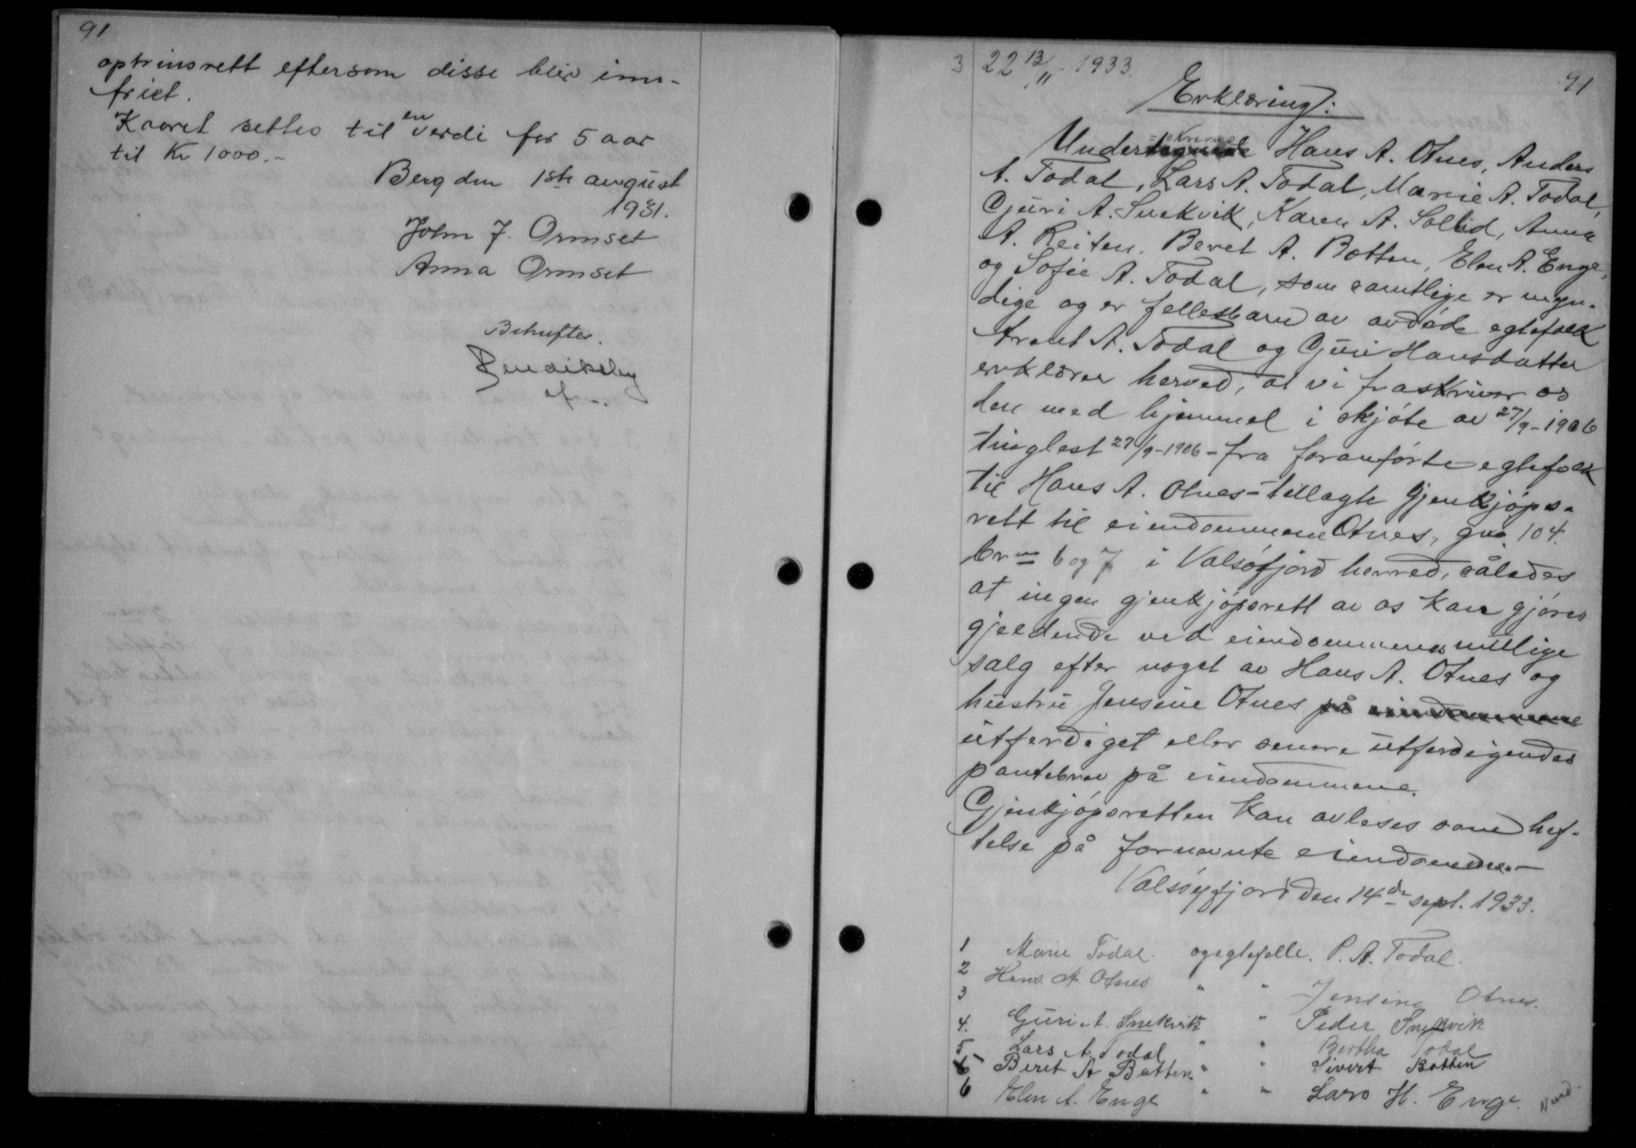 91
optrinsrett eftersom disse blir inn-
friet.
Kaaret settes til en verdi for 5 aar
til Kr 1000.-
Berg den 1ste august
1931.
John J. Ormset
Anna Ormset
Bekreftes.
3 22 13/11 - 1933.
91
Erklæring:
Hans A. Otnes, Anders
A. Todal, Lars A. Todal, Marie A. Todal,
Gjuri A. Snekvik, Karen A. Sollid, Anna
A. Reiten, Beret A. Botten, Elen A. Enge,
og Sofie A. Todal, som samtlige er myn-
dige og er fellesbarn av avdøde egtefolk
Arent A. Todal og Gjuri Hansdatter
erklærer herved, at vi fraskriver os
den med hjemmel i skjøte av 27/9-1906
tinglest 27/9-1906 - fra foranførte egtefolk
til Hans A. Otnes - tillagte Gjenkjøps-
rett til eiendommene Otnes, gno. 104.
brno 6 og 7 i Valsøfjord herred, således
at ingen gjenkjøpsrett av os kan gjøres
gjeldende ved eiendommenes mulige
salg efter noget av Hans A. Otnes og
hustru Jensine Otnes på eiendommene
utferdiget eller senere utferdigendes
pantebrev på eiendommene.
Gjenkjøpsretten kan avleses som hef-
telse på fornevnte eiendomme.-
Valsøyfjord den 14de sept. 1933.
1 Marie Todal. og egtefelle. P. A. Todal.
2 Hans A Otnes " " Jensine Otnes.
3
4. Guri A. Snekvik " Peder Snekvik
5 Lars A. Todal " " Bertha Todal
6 Beret A Botten " " Sivert Botten
6 Elen A. Enge " " Lars H. Enge.